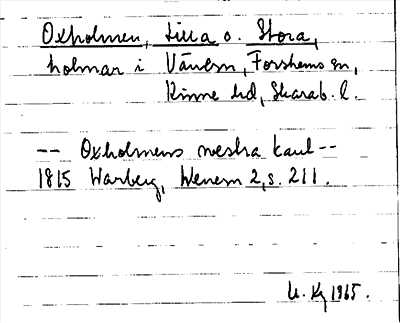 Oxholmen, Lilla o. Stora,
holmar i Vänern, Forshems sn,
Kinne hd, Skarab. l.
-- Oxholmens westra kant --
1815 Warberg, Wenern 2, s. 211.
1965.